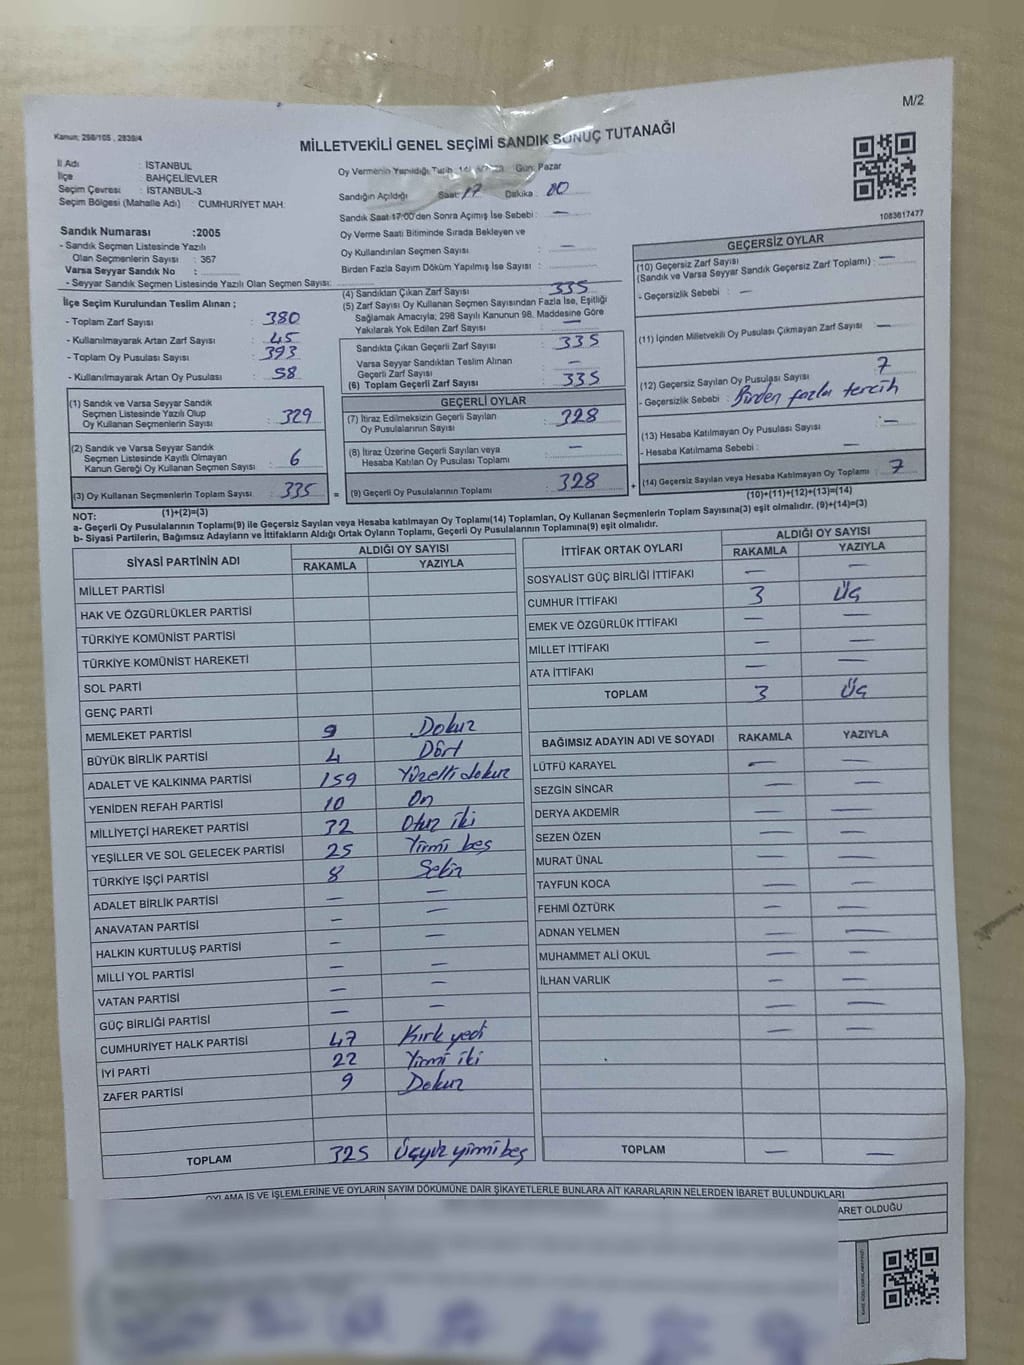 M/2
Kanun: 298/105 , 2839/4
MİLLETVEKİLİ GENEL SEÇİMİ SANDIK SONUÇ TUTANAĞI
İl Adı : İSTANBUL
İlçe BAHÇELİEVLER
Seçim Çevresi : İSTANBUL-3
Seçim Bölgesi (Mahalle Adı) : CUMHURİYET MAH.
Sandık Numarası :2005
- Sandık Seçmen Listesinde Yazılı
Olan Seçmenlerin Sayısı : 367
Varsa Seyyar Sandık No :
- Seyyar Sandık Seçmen Listesinde Yazılı Olan Seçmen Sayısı:
İlçe Seçim Kurulundan Teslim Alınan ;
- Toplam Zarf Sayısı 380
- Kullanılmayarak Artan Zarf Sayısı 45
- Toplam Oy Pusulası Sayısı 393
- Kullanılmayarak Artan Oy Pusulası 58
(1) Sandık ve Varsa Seyyar Sandık
Seçmen Listesinde Yazılı Olup
Oy Kullanan Seçmenlerin Sayısı : 329
(2) Sandık ve Varsa Seyyar Sandık
Seçmen Listesinde Kayıtlı Olmayan
Kanun Gereği Oy Kullanan Seçmen Sayısı : 6
(3) Oy Kullanan Seçmenlerin Toplam Sayısı : 335 =
(1)+(2)=(3)
Oy Vermenin Yapıldığı Gün. Pazar
Sandığın Açıldığı Saat: 17 Dakika : 00
Sandık Saat 17:00'den Sonra Açımış İse Sebebi : —
Oy Verme Saati Bitiminde Sırada Bekleyen ve
Oy Kullandırılan Seçmen Sayısı : —
Birden Fazla Sayım Döküm Yapılmış İse Sayısı :
(4) Sandıktan Çıkan Zarf Sayısı : 335
(5) Zarf Sayısı Oy Kullanan Seçmen Sayısından Fazla İse, Eşitliği
Sağlamak Amacıyla; 298 Sayılı Kanunun 98. Maddesine Göre
Yakılarak Yok Edilen Zarf Sayısı : —
Sandıkta Çıkan Geçerli Zarf Sayısı : 335
Varsa Seyyar Sandıktan Teslim Alınan
Geçerli Zarf Sayısı : —
(6) Toplam Geçerli Zarf Sayısı : 335
GEÇERLİ OYLAR
(7) İtiraz Edilmeksizin Geçerli Sayılan
Oy Pusulalarının Sayısı : 328
(8) İtiraz Üzerine Geçerli Sayılan veya
Hesaba Katılan Oy Pusulası Toplamı : —
(9) Geçerli Oy Pusulalarının Toplamı : 328 +
1083617477
GEÇERSİZ OYLAR
(10) Geçersiz Zarf Sayısı
(Sandık ve Varsa Seyyar Sandık Geçersiz Zarf Toplamı) : —
- Geçersizlik Sebebi : —
(11) İçinden Milletvekili Oy Pusulası Çıkmayan Zarf Sayısı : —
(12) Geçersiz Sayılan Oy Pusulası Sayısı : 7
- Geçersizlik Sebebi : Birden fazla tercih
(13) Hesaba Katılmayan Oy Pusulası Sayısı : —
- Hesaba Katılmama Sebebi : —
(14) Geçersiz Sayılan veya Hesaba Katılmayan Oy Toplamı : 7
(10)+(11)+(12)+(13)=(14)
NOT:
a- Geçerli Oy Pusulalarının Toplamı(9) ile Geçersiz Sayılan veya Hesaba katılmayan Oy Toplamı(14) Toplamları, Oy Kullanan Seçmenlerin Toplam Sayısına(3) eşit olmalıdır. (9)+(14)=(3)
b- Siyasi Partilerin, Bağımsız Adayların ve İttifakların Aldığı Ortak Oyların Toplamı, Geçerli Oy Pusulalarının Toplamına(9) eşit olmalıdır.
SİYASİ PARTİNİN ADI
ALDIĞI OY SAYISI
RAKAMLA YAZIYLA
MİLLET PARTİSİ
HAK VE ÖZGÜRLÜKLER PARTİSİ
TÜRKİYE KOMÜNİST PARTİSİ
TÜRKİYE KOMÜNİST HAREKETİ
SOL PARTİ
GENÇ PARTİ
MEMLEKET PARTİSİ 9 Dokuz
BÜYÜK BİRLİK PARTİSİ 4 Dört
ADALET VE KALKINMA PARTİSİ 159 Yüzelli dokuz
YENİDEN REFAH PARTİSİ 10 On
MİLLİYETÇİ HAREKET PARTİSİ 32 Otuz iki
YEŞİLLER VE SOL GELECEK PARTİSİ 25 Yirmi beş
TÜRKİYE İŞÇİ PARTİSİ 8 Sekiz
ADALET BİRLİK PARTİSİ — —
ANAVATAN PARTİSİ — —
HALKIN KURTULUŞ PARTİSİ — —
MİLLİ YOL PARTİSİ — —
VATAN PARTİSİ — —
GÜÇ BİRLİĞİ PARTİSİ — —
CUMHURİYET HALK PARTİSİ 47 Kırk yedi
İYİ PARTİ 22 Yirmi iki
ZAFER PARTİSİ 9 Dokuz
TOPLAM 325 Üçyüz yirmi beş
İTTİFAK ORTAK OYLARI
ALDIĞI OY SAYISI
RAKAMLA YAZIYLA
SOSYALİST GÜÇ BİRLİĞİ İTTİFAKI — —
CUMHUR İTTİFAKI 3 Üç
EMEK VE ÖZGÜRLÜK İTTİFAKI — —
MİLLET İTTİFAKI — —
ATA İTTİFAKI — —
TOPLAM 3 Üç
BAĞIMSIZ ADAYIN ADI VE SOYADI RAKAMLA YAZIYLA
LÜTFÜ KARAYEL — —
SEZGİN SİNCAR — —
DERYA AKDEMİR — —
SEZEN ÖZEN — —
MURAT ÜNAL — —
TAYFUN KOCA — —
FEHMİ ÖZTÜRK — —
ADNAN YELMEN — —
MUHAMMET ALİ OKUL — —
İLHAN VARLIK — —
— —
— —
TOPLAM — —
OYLAMA İŞ VE İŞLEMLERİNE VE OYLARIN SAYIM DÖKÜMÜNE DAİR ŞİKAYETLERLE BUNLARA AİT KARARLARIN NELERDEN İBARET BULUNDUKLARI
ARET OLDUĞU